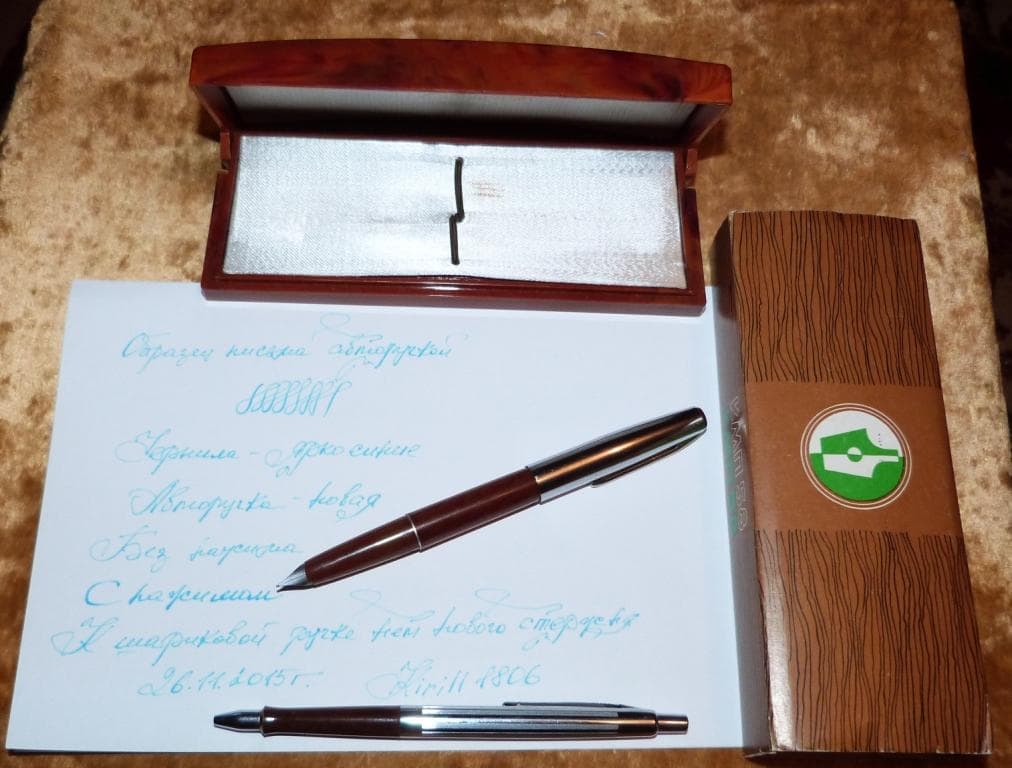 Образец письма авторучкой
Чернила - ярко синие
Авторучка - новая
Без нажима
С нажимом
К шариковой ручке нет нового стержня
26.11.2015г. Kirill 1806